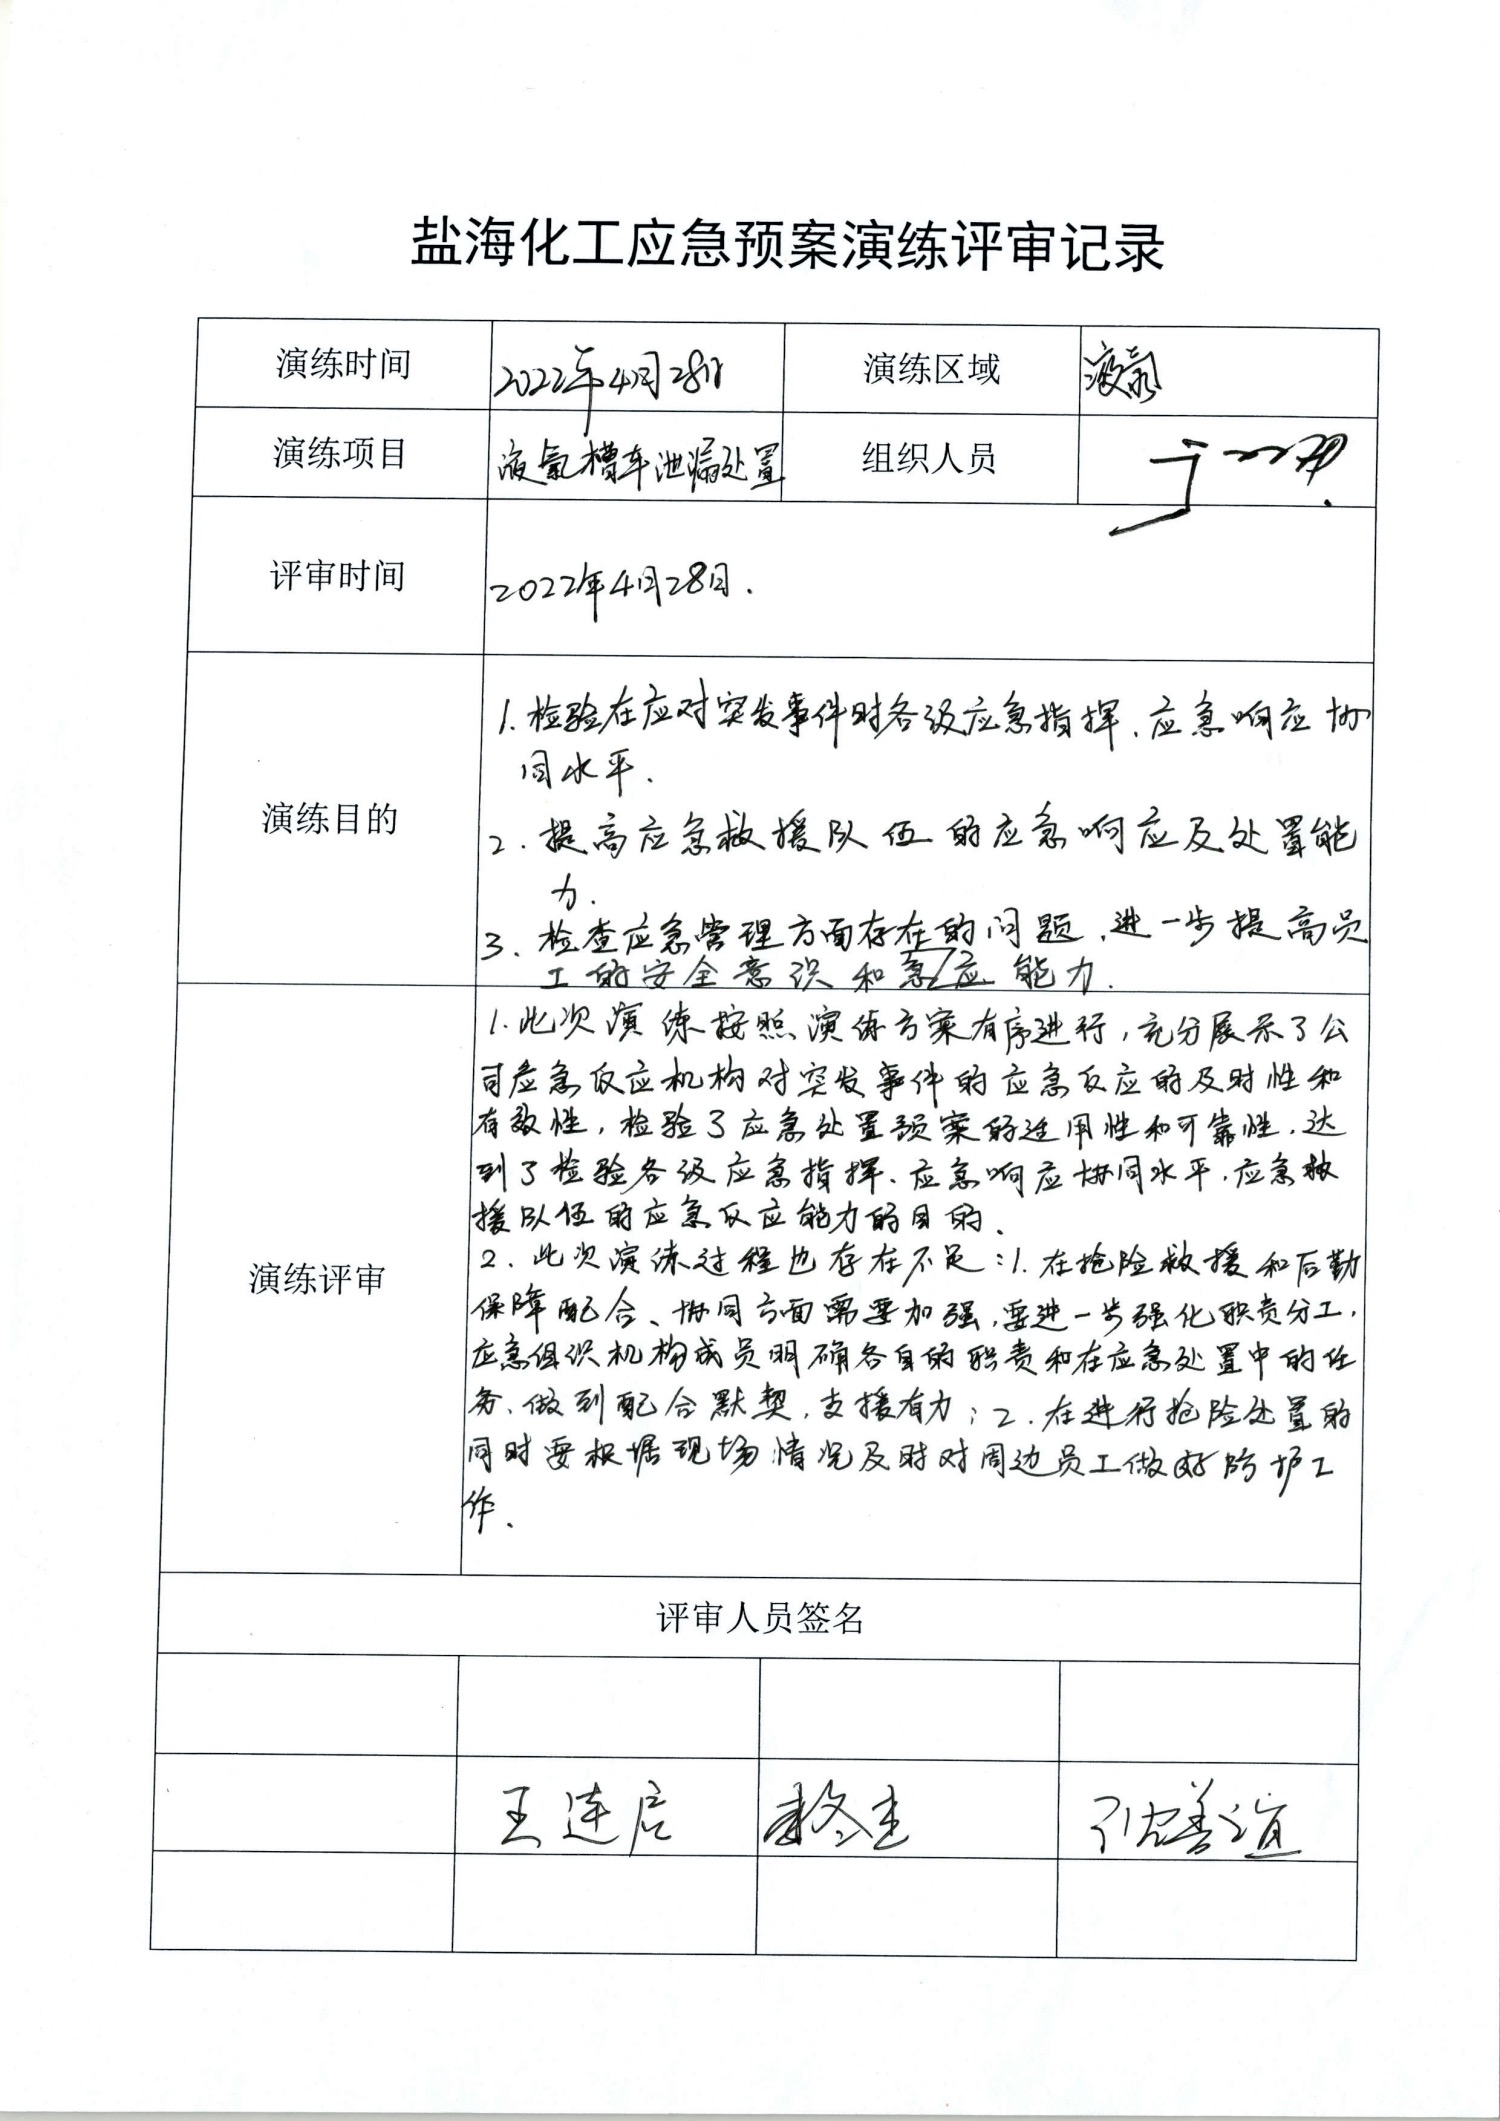 盐海化工应急预案演练评审记录
演练时间 2022年4月28日 演练区域 液氯
演练项目 液氯槽车泄漏处置 组织人员
评审时间 2022年4月28日.
演练目的
1.检验在应对突发事件时各级应急指挥、应急响应协
同水平.
2.提高应急救援队伍的应急响应及处置能
力.
3、检查应急管理方面存在的问题,进一步提高员
工的安全意识和急应能力.
演练评审
1.此次演练按照演练方案有序进行,充分展示了公
司应急反应机构对突发事件的应急反应的及时性和
有效性,检验了应急处置预案的适用性和可靠性.达
到了检验各级应急指挥、应急响应协同水平.应急救
援队伍的应急反应能力的目的、
2、此次演练过程也存在不足:1.在抢险救援和后勤
保障配合、协同方面需要加强,要进一步强化职责分工,
应急组织机构成员明确各自的职责和在应急处置中的任
务、做到配合默契,支援有力;2.在进行抢险处置的
同时要根据现场情况及时对周边员工做好防护工
作、
评审人员签名
王连启